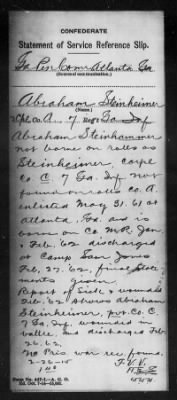 CONFEDERATE
Statement of Service Reference Slip.
Ga Pen Com Atlanta Ga
Abraham Steinheimer
(Name.)
Co. A 7, Reg't Ga Inf
Abraham Steinhammer
not borne on rolls as
Steinheimer, corpl
co. C, 7 Ga. Inf not
found on rolls co. A.
enlisted May 31. 61 at
Atlanta, Ga. and is
borne on co M.R. Jan
& Feb. '62 discharged
at Camp Sam Jones
Feb, 27, 62, final State-
ments given.
Report of sick & wounded
Feb. 62 shows Abraham
Steinheimer, pvt. Co. C
7 Ga. Inf, wounded in
battle and discharged Feb
26, 62.
No Pris. war rec. found.
2-26-15